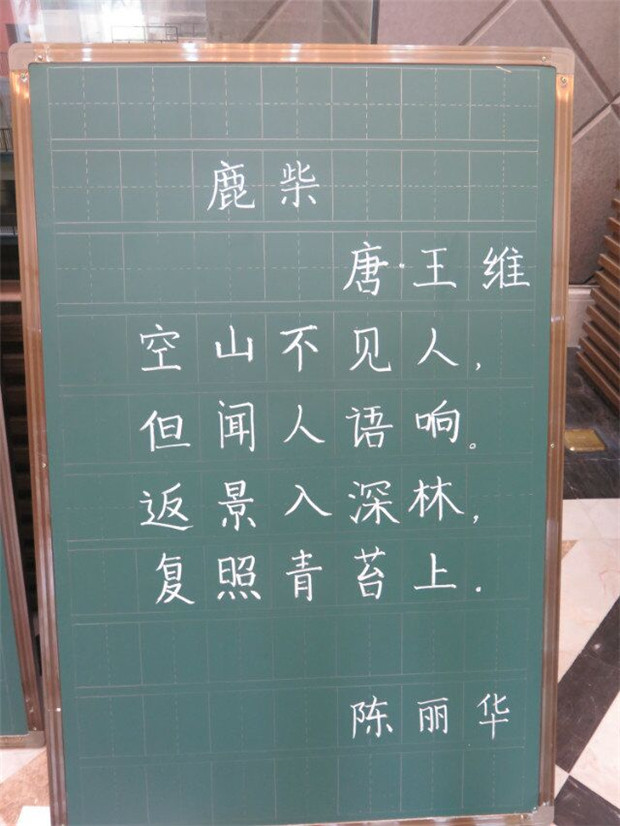 鹿柴
唐·王维
空山不见人,
但闻人语响。
返景入深林,
复照青苔上.
陈丽华